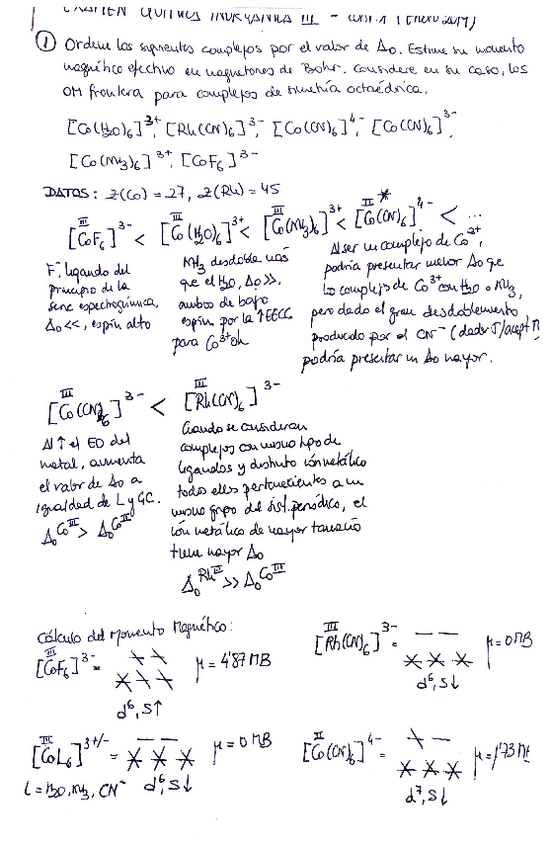 EXAMEN QUÍMICA INORGÁNICA III - CONV. 1 (ENERO 2017)
① Ordene los siguientes complejos por el valor de Δo. Estime su momento
magnético efectivo en magnetones de Bohr. Considere en su caso, los
OM frontera para complejos de simetría octaédrica.
[Co(H2O)6]3+, [Rh(CN)6]3-, [Co(CN)6]4-, [Co(CN)6]3-,
[Co(NH3)6]3+, [CoF6]3-
DATOS: Z(Co) = 27, Z(Rh) = 45
[CoIIIF6]3- < [CoIII(H2O)6]3+ < [CoIII(NH3)6]3+ < [CoII(CN)6]4- * < ...
F-, ligando del
principio de la
serie espectroquímica,
Δo <<, espín alto
NH3 desdobla más
que el H2O, Δo >>,
ambos de bajo
espín por la ↑EECC
para Co3+ oh
Al ser un complejo de Co2+,
podría presentar menor Δo que
los complejos de Co3+ con H2O o NH3,
pero dado el gran desdoblamiento
producido por el CN- (dador σ/acept π)
podría presentar un Δo mayor.
[CoIII(CN)6]3- < [RhIII(CN)6]3-
Al ↑ el EO del
metal, aumenta
el valor de Δo a
igualdad de L y GC.
ΔoCoIII > ΔoCoII
Cuando se consideran
complejos con mismo tipo de
ligandos y distinto ión metálico
todos ellos pertenecientes a un
mismo grupo del sist. periódico, el
ión metálico de mayor tamaño
tiene mayor Δo
ΔoRhIII >> ΔoCoIII
Cálculo del Momento Magnético:
[CoIIIF6]3- = μ = 4'87 MB
d6, S↑
[RhIII(CN)6]3- = μ = 0 MB
d6, S↓
[CoIIIL6]3+/- = μ = 0 MB
L = H2O, NH3, CN- d6, S↓
[CoII(CN)6]4- = μ = 1'73 MB
d7, S↓